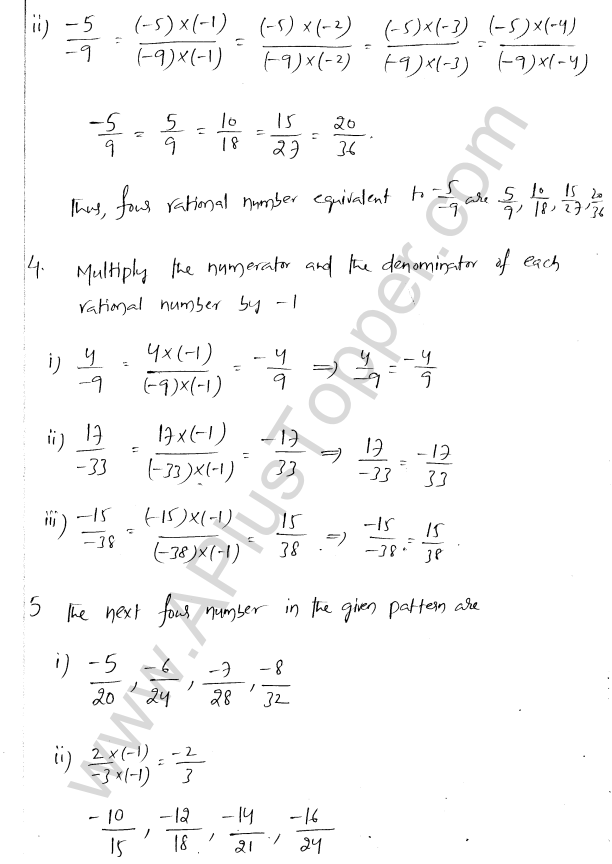 ii) -5/-9 = (-5)×(-1)/(-9)×(-1) = (-5)×(-2)/(-9)×(-2) = (-5)×(-3)/(-9)×(-3) = (-5)×(-4)/(-9)×(-4)
-5/9 = 5/9 = 10/18 = 15/27 = 20/36.
Thus, four rational number equivalent to -5/-9 are 5/9, 10/18, 15/27, 20/36
4. Multiply the numerator and the denominator of each
rational number by -1
i) 4/-9 = 4×(-1)/(-9)×(-1) = -4/9 ⇒ 4/-9 = -4/9
ii) 17/-33 = 17×(-1)/(-33)×(-1) = -17/33 ⇒ 17/-33 = -17/33
iii) -15/-38 = (-15)×(-1)/(-38)×(-1) = 15/38 . ⇒ -15/-38 = 15/38.
5 The next four number in the given pattern are
i) -5/20, -6/24, -7/28, -8/32
ii) 2×(-1)/-3×(-1) = -2/3
-10/15, -12/18, -14/21, -16/24 .
www.APlusTopper.com